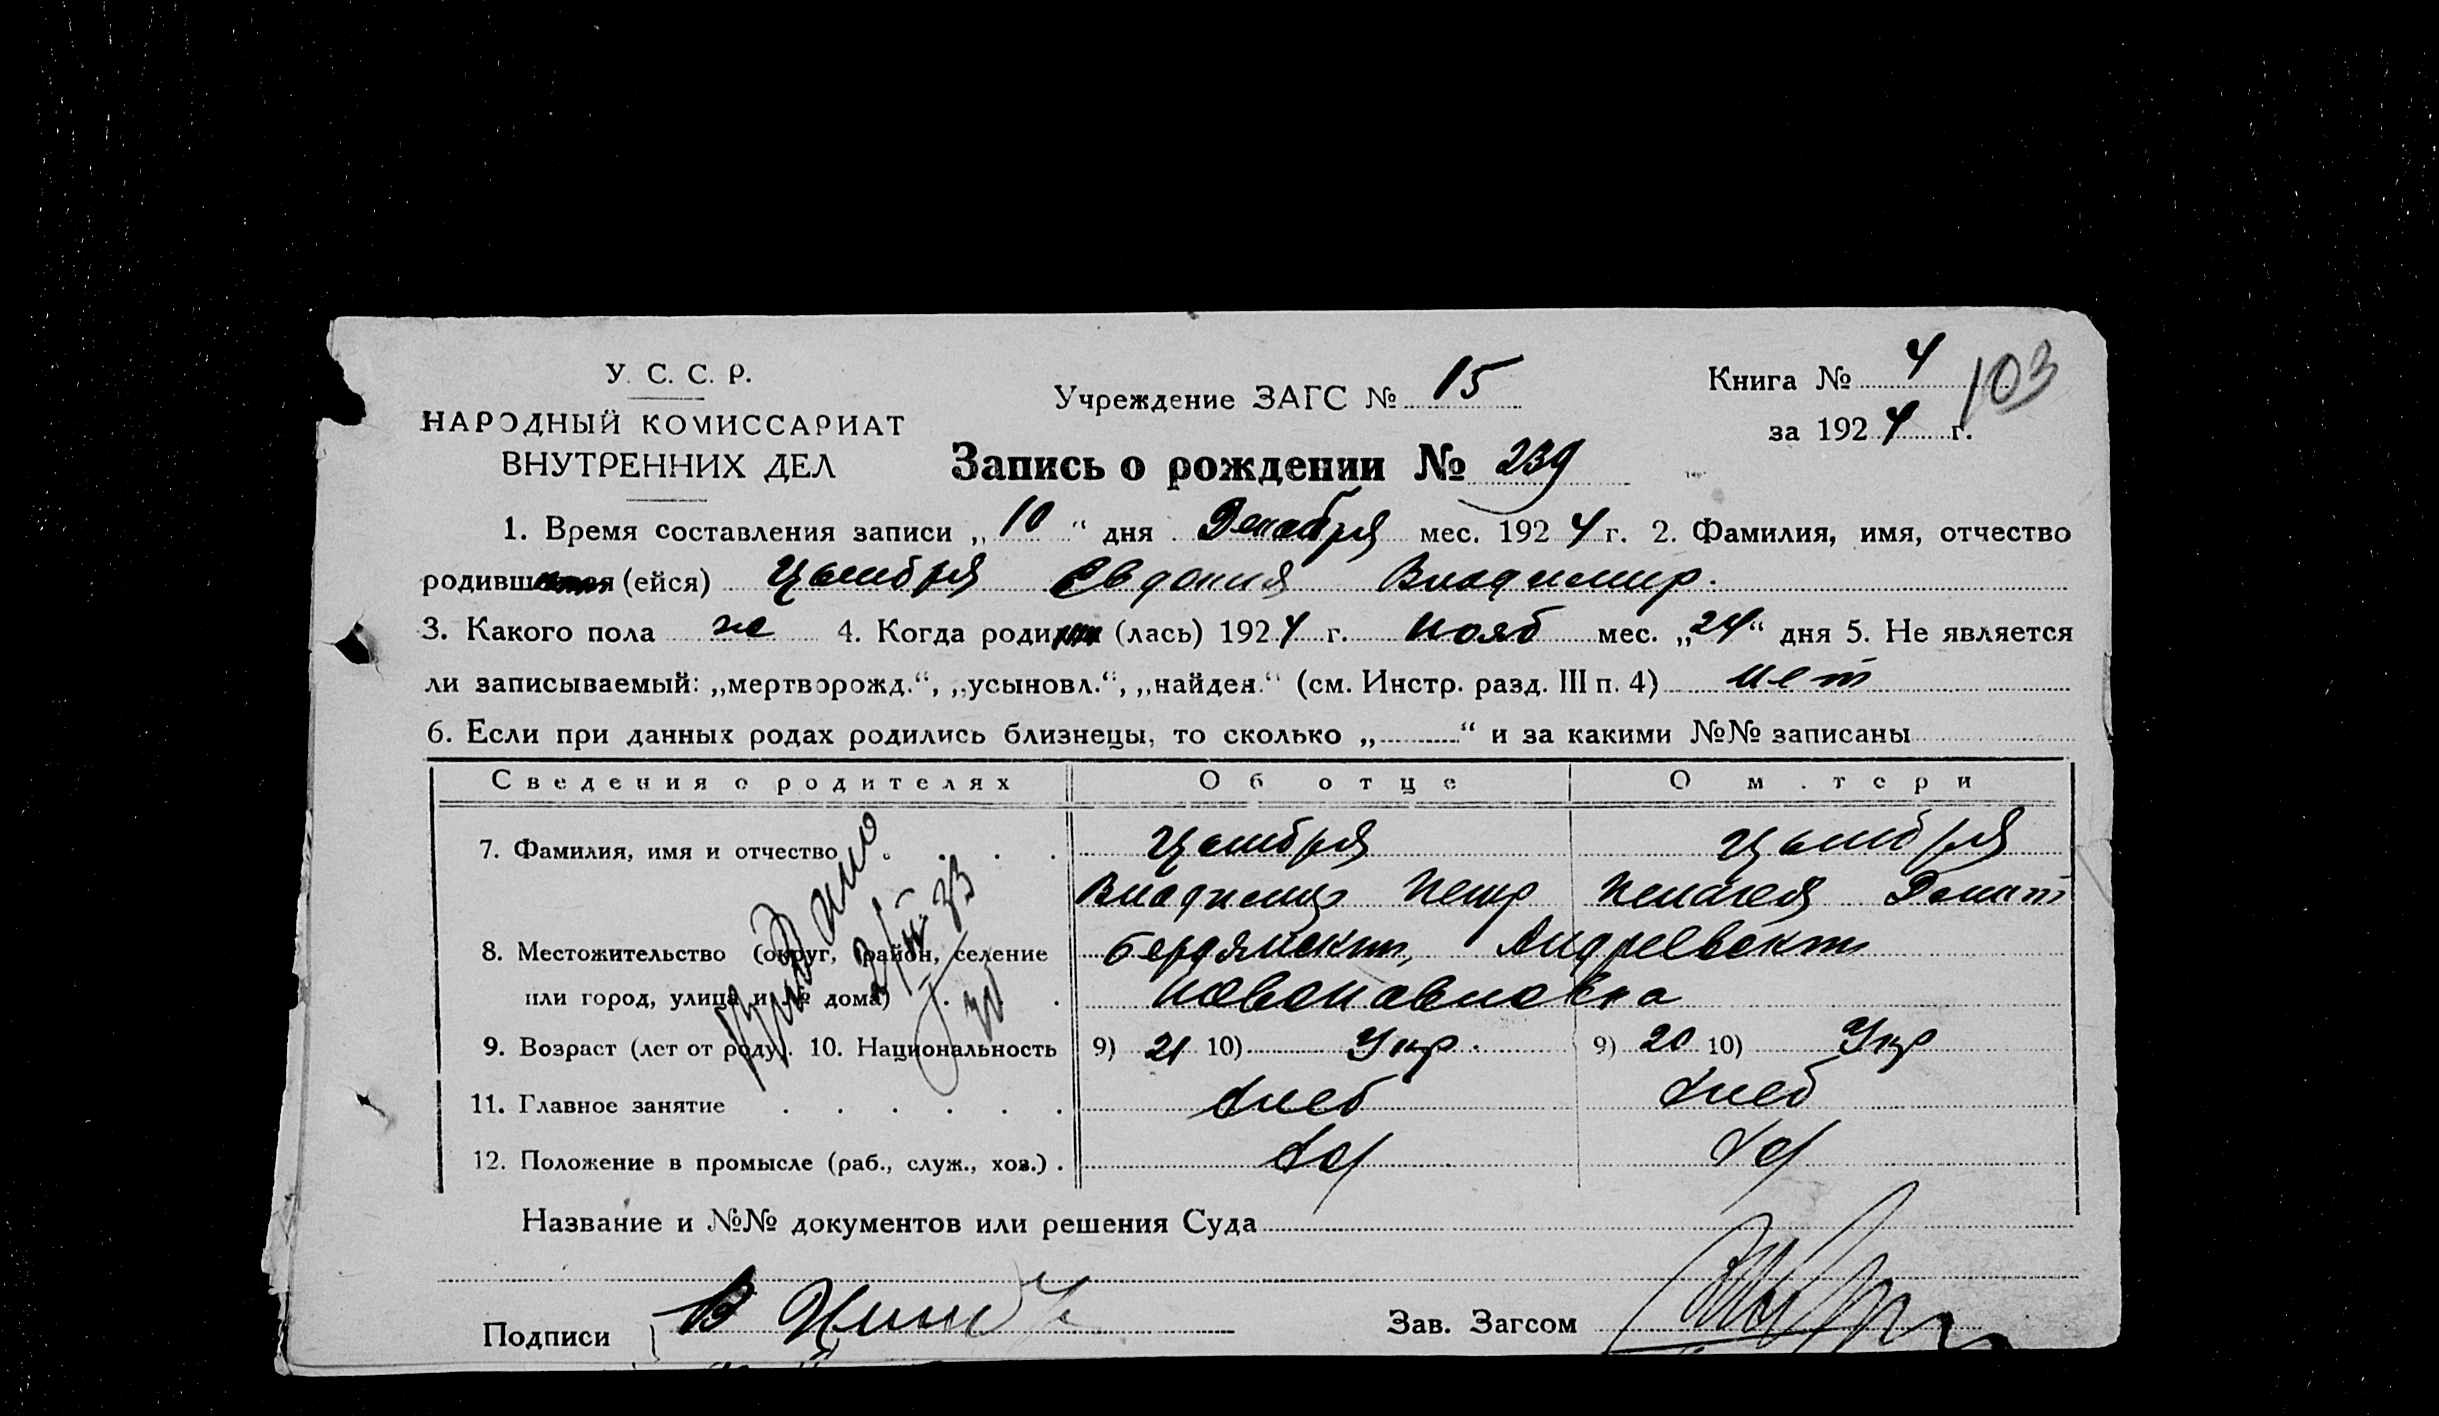 У. С. С. Р.
НАРОДНЫЙ КОМИССАРИАТ
ВНУТРЕННИХ ДЕЛ
Учреждение ЗАГС № 15
Книга № 4
103
за 1924 г.
Запись о рождении № 239
1. Время составления записи „10" дня Декабря мес. 1924 г. 2. Фамилия, имя, отчество
родивш (ейся) Цымбря Евдокия Владимир.
3. Какого пола же 4. Когда роди (лась) 1924 г. нояб мес. „24" дня 5. Не является
ли записываемый: „мертворожд.", „усыновл.", „найден." (см. Инстр. разд. III п. 4) нет
6. Если при данных родах родились близнецы, то сколько „ " и за какими №№ записаны
Сведения о родителях Об отце О м.тери
7. Фамилия, имя и отчество Цымбря Цымбря
Владимир Петр Пелагея
8. Местожительство (округ, район, селение Бердянск Андреевск
или город, улица и № дома) Новопавловка
9. Возраст (лет от роду). 10. Национальность 9) 21 10) Укр. 9) 20 10) Укр
11. Главное занятие Хлеб Хлеб
12. Положение в промысле (раб., служ., хоз.) Хоз Хоз
Название и №№ документов или решения Суда
Подписи В
Зав. Загсом